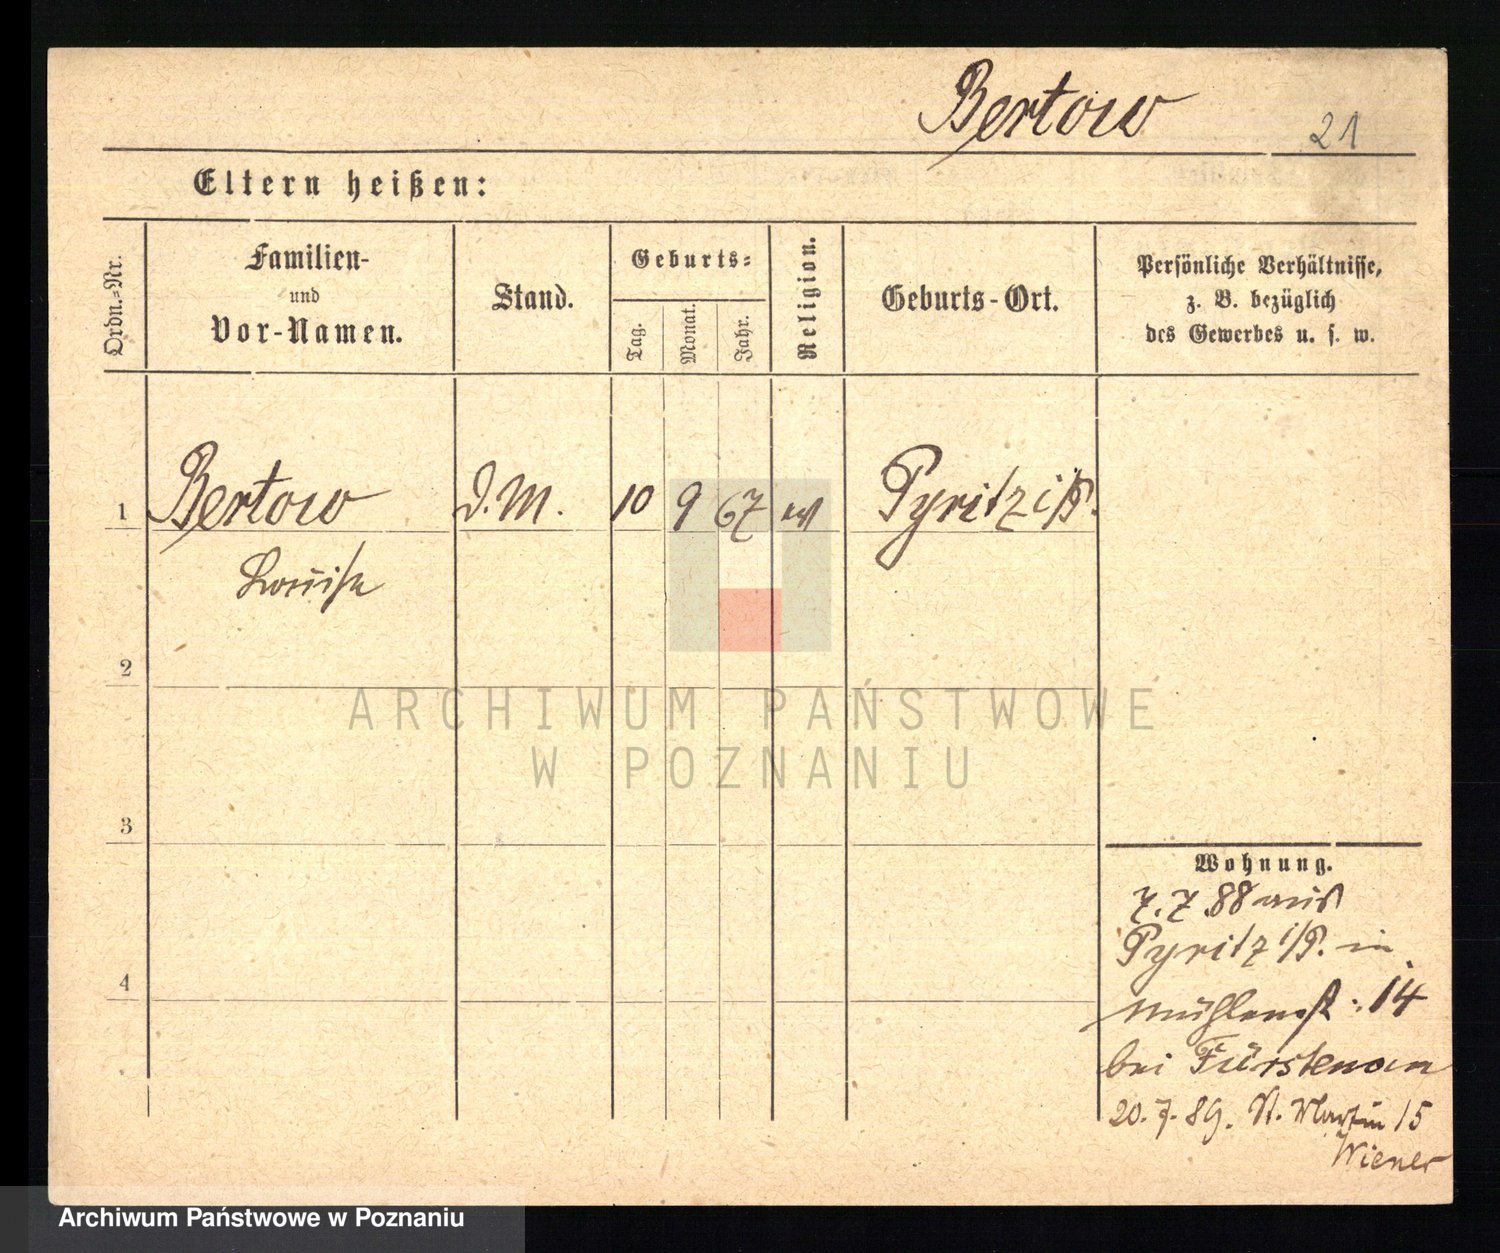 Bertow
21
Eltern heißen:
Ordn.=Nr.
Familien-
und
Vor-Namen.
Stand.
Geburts=
Tag.
Monat.
Jahr.
Religion.
Geburts-Ort.
Persönliche Verhältnisse,
z. B. bezüglich
des Gewerbes u. s. w.
1 Bertow D. M. 10 9 67 ev Pyritz i/P.
Louise
2
ARCHIWUM PAŃSTWOWE
W POZNANIU
3
4
Wohnung.
7. 7. 88 aus
Pyritz i/P. in
Mühlenst. 14
bei Fürstenau
20. 7. 89. St. Martin 15
Wiener
Archiwum Państwowe w Poznaniu